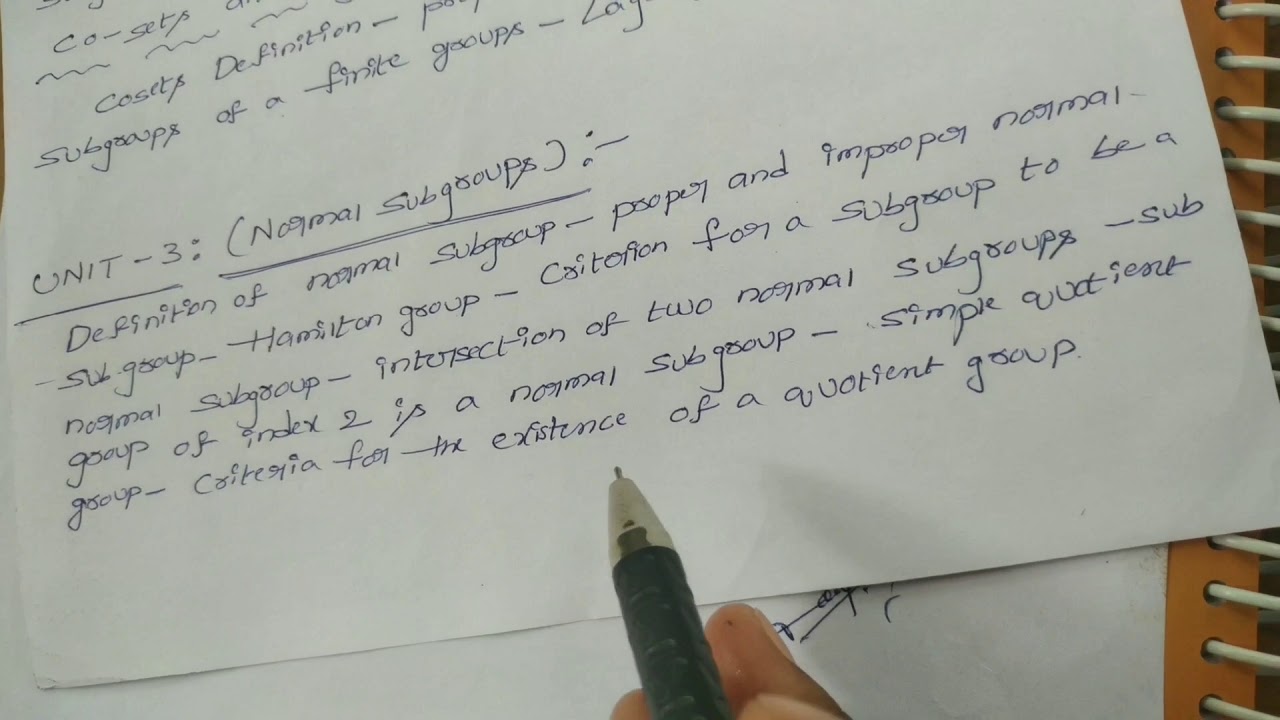 Co-sets
Cosets Definition - prop
subgroups of a finite groups - Lag
UNIT-3: (Normal subgroups) :-
Definition of normal subgroup - proper and improper normal -
- sub group - Hamilton group - Criterion for a subgroup to be a
normal subgroup - intersection of two normal subgroups - sub
group of index 2 is a normal subgroup - simple quotient
group - Criteria for the existence of a quotient group.